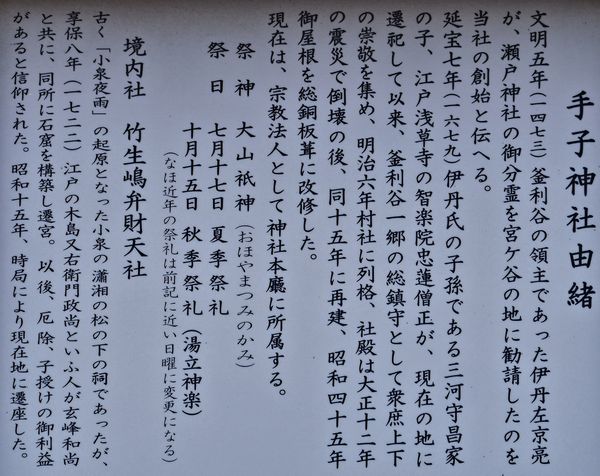 手子神社由緒
文明五年(一四七三)釜利谷の領主であった伊丹左京亮
が、瀬戸神社の御分霊を宮ケ谷の地に勧請したのを
当社の創始と伝へる。
延宝七年(一六七九)伊丹氏の子孫である三河守昌家
の子、江戸浅草寺の智楽院忠蓮僧正が、現在の地に
遷祀して以来、釜利谷一郷の総鎮守として衆庶上下
の崇敬を集め、明治六年村社に列格、社殿は大正十二年
の震災で倒壊の後、同十五年に再建、昭和四十五年
御屋根を総銅板葺に改修した。
現在は、宗教法人として神社本廳に所属する。
祭神 大山祇神(おほやまつみのかみ)
祭日 七月十七日 夏季祭礼
十月十五日 秋季祭礼(湯立神楽)
(なほ近年の祭礼は前記に近い日曜に変更になる)
境内社 竹生嶋弁財天社
古く「小泉夜雨」の起原となった小泉の瀟湘の松の下の祠であったが、
享保八年(一七二二)江戸の木島又右衛門政尚といふ人が玄峰和尚
と共に、同所に石窟を構築し遷宮。以後、厄除 子授けの御利益
があると信仰された。昭和十五年、時局により現在地に遷座した。